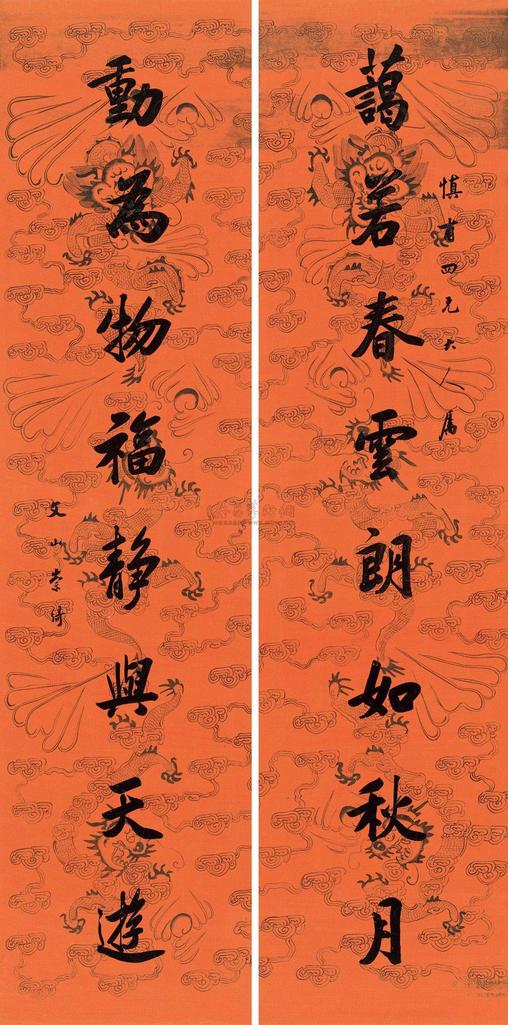 慎甫四兄大人属
藹若春雲朗如秋月
動為物福静與天遊
文山崇綺